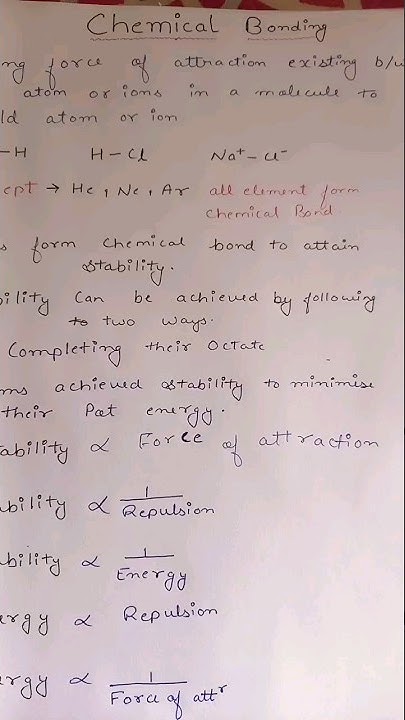 Chemical Bonding
ng force of attraction existing b/w
atom or ions in a molecule to
ld atom or ion
-H H-Cl Na⁺-Cl⁻
ept → He, Ne, Ar all element form
Chemical Bond.
s form chemical bond to attain
stability.
bility can be achieved by following
to two ways.
Completing their Octate
ms achieved stability to minimise
their Pot energy.
ability ∝ Force of attraction
bility ∝ 1/Repulsion
bility ∝ 1/Energy
ergy ∝ Repulsion
ergy ∝ 1/Force of attʳ